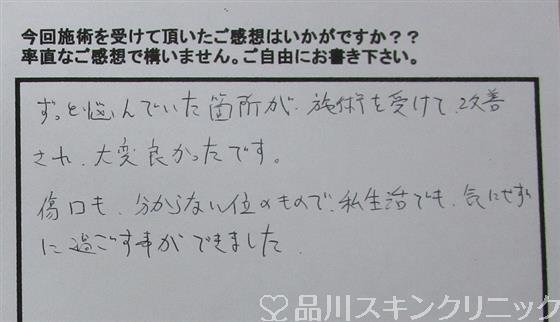 今回施術を受けて頂いたご感想はいかがですか??
率直なご感想で構いません。ご自由にお書き下さい。
ずっと悩んでいた箇所が、施術を受けて、改善
され、大変良かったです。
傷口も、分からない位のもので、私生活でも、気にせず
に過ごす事ができました
品川スキンクリニック